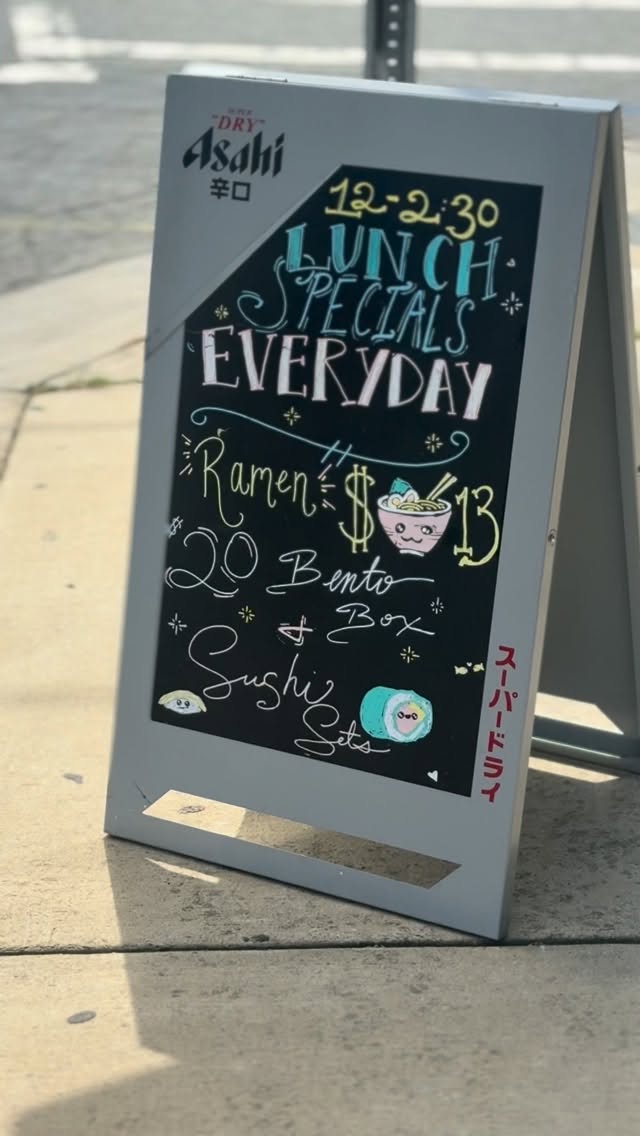 SUPER
"DRY"
Asahi
辛口
12-2:30
LUNCH
SPECIALS
EVERYDAY
Ramen $13
20 Bento
Box
&
Sushi
Sets
スーパードライ